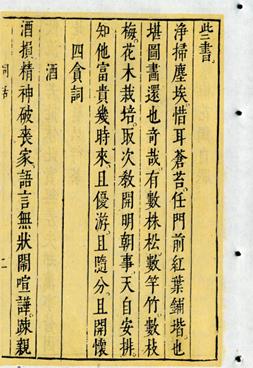 此二書。
淨掃塵埃惜耳蒼苔。任門前紅葉鋪堦。也
堪圖畫還也奇哉。有數株松。數竿竹。數枝
梅。花木栽培。取次教開。明朝事。天自安排。
知他富貴幾時來。且優游。且隨分。且開懷
四貪詞
酒
酒損精神破喪家。語言無狀鬧喧譁。疎親
詞話
一